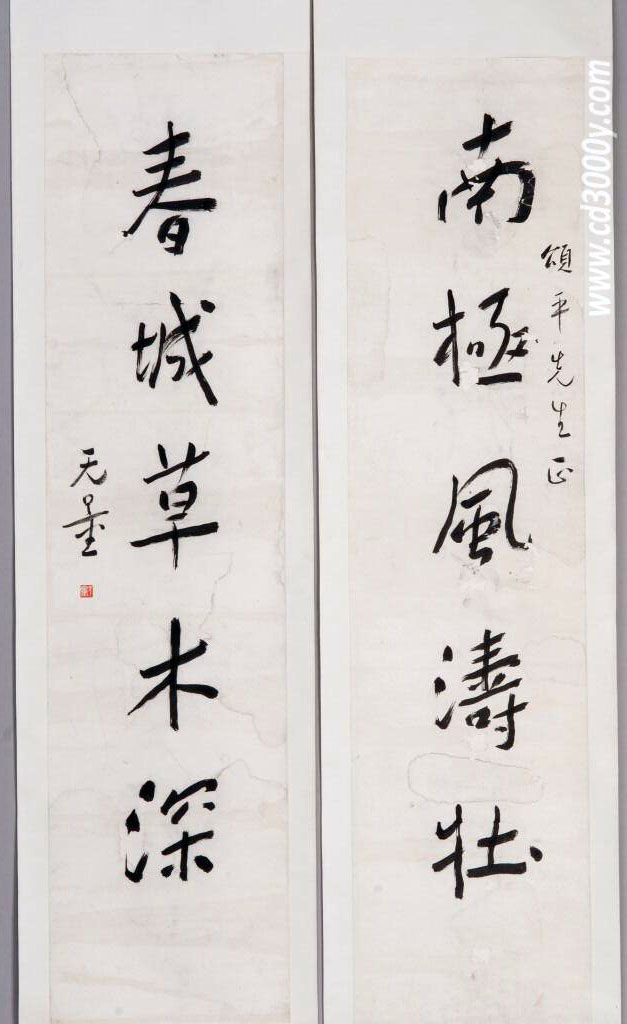 南極風濤壯
頌平先生正
春城草木深
无量
www.cd3000y.com